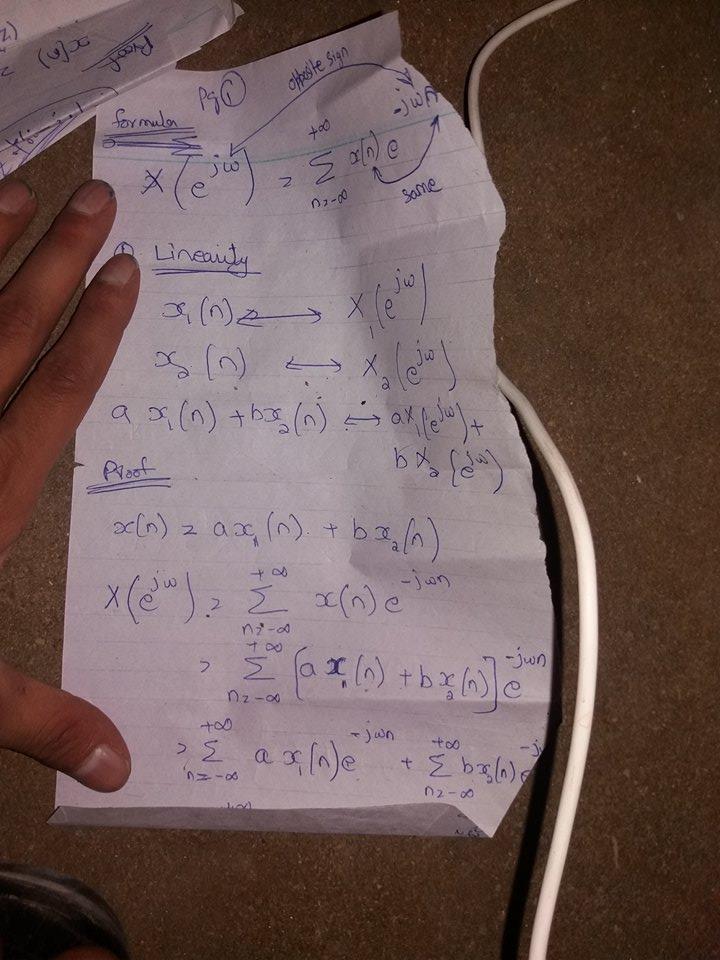 Proof
x(n)
Pg ①
opposite sign
formula
X(e^{jω}) = Σ_{n=-∞}^{+∞} x(n) e^{-jωn}
same
① Linearity
x₁(n) ⟷ X₁(e^{jω})
x₂(n) ⟷ X₂(e^{jω})
a x₁(n) + bx₂(n) ⟷ aX₁(e^{jω}) +
bX₂(e^{jω})
Proof
x(n) = a x₁(n) + b x₂(n)
X(e^{jω}) = Σ_{n=-∞}^{+∞} x(n) e^{-jωn}
= Σ_{n=-∞}^{+∞} [a x₁(n) + b x₂(n)] e^{-jωn}
= Σ_{n=-∞}^{+∞} a x₁(n) e^{-jωn} + Σ_{n=-∞}^{+∞} bx₂(n) e^{-j